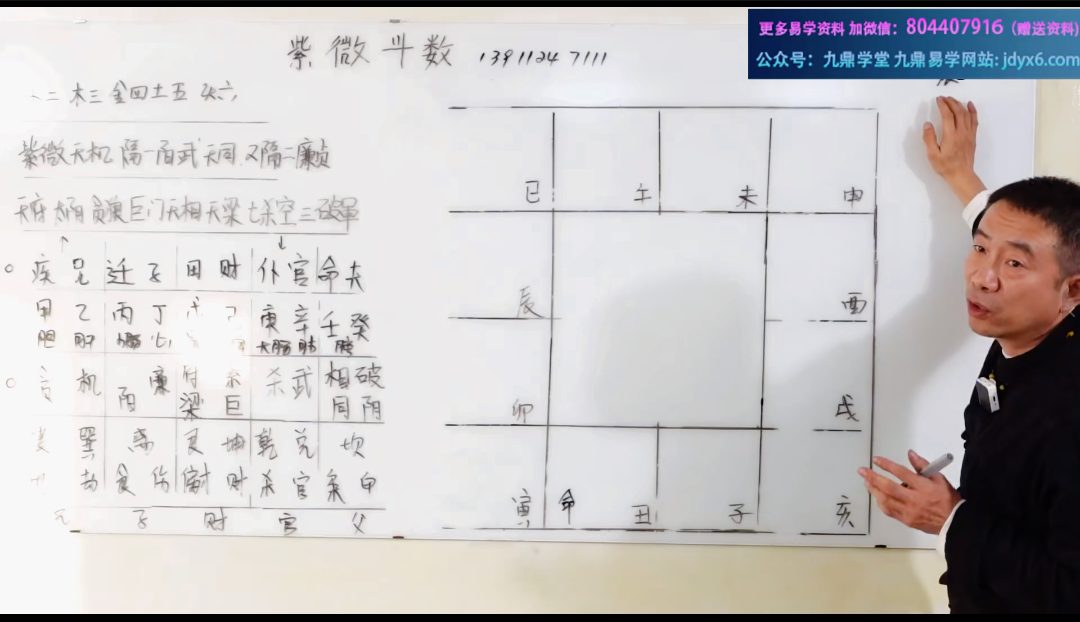 更多易学资料 加微信：804407916（赠送资料）
公众号：九鼎学堂 九鼎易学网站：jdyx6.com
紫微斗数 13911247111
二木三金四土五火六
紫微天机 隔一阳武天同 又隔二廉贞
天府太阴贪狼巨门天相天梁七杀空三破军
疾兄迁子田财仆官命夫
甲乙丙丁 庚辛壬癸
胆肝小肠心 大肠肺
机阳廉府梁巨杀武相同破阴
巽离艮坤乾兑坎
劫食伤财杀官枭印
兄子财官父
巳午未申
辰酉
卯戌
寅命丑子亥